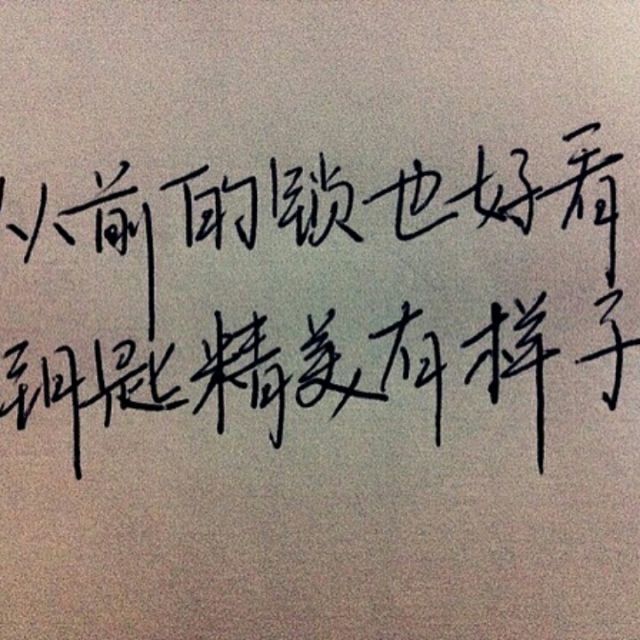 从前的锁也好看
钥匙精美有样子